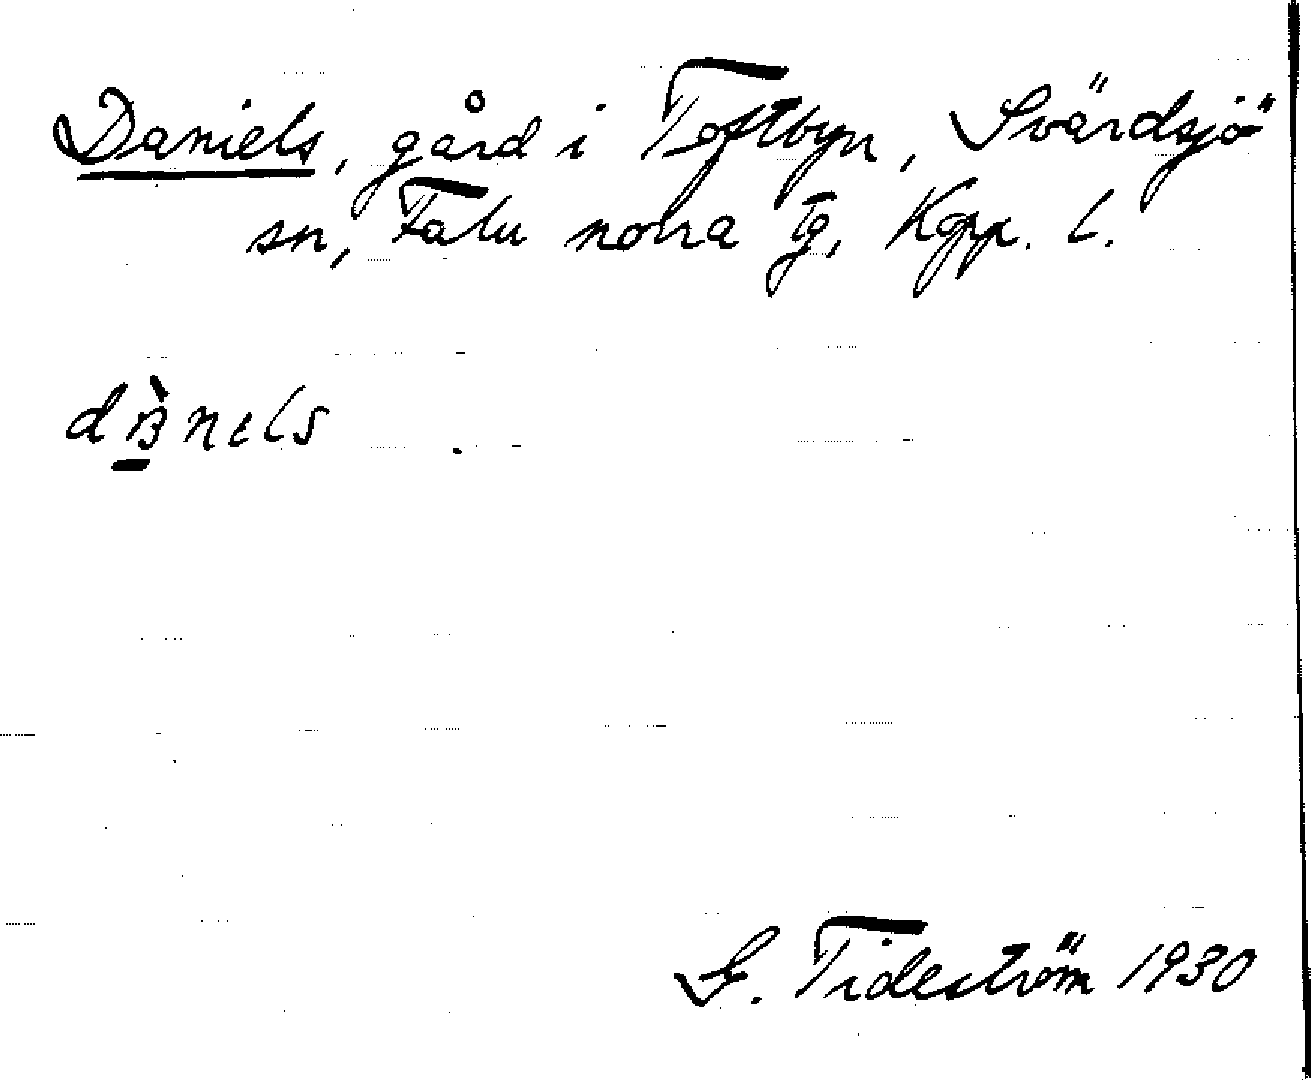 Daniels, gård i Toftbyn, Svärdsjö
sn, Falu norra tg, Kopp. l.
G. Tideström 1930